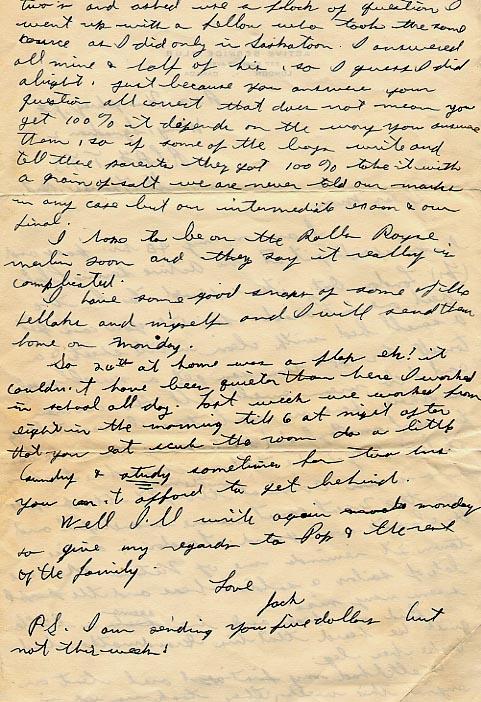 two's and asked us a flock of question I
went up with a fellow who took the same
course as I did only in Saskatoon. I answered
all mine & half of his, so I guess I did
alright. just because you answer your
question all correct that does not mean you
get 100% it depends on the way you answer
them, so if some of the boys write and
tell there parents they got 100% take it with
a grain of salt we are never told our marks
in any case but our intermediate exam & our
final.
I hope to be on the Rolls Royse
merlin soon and they say it really is
complicated.
I have some good snaps of some of the
fellahs and myself and I will send them
home on Monday.
So 24th at home was a flop eh! it
couldn't have been quieter than here I worked
in school all day. Last week we worked from
eight in the morning till 6 at night after
that you eat scrub the room do a little
laundry & study sometimes for two hrs.
you can't afford to get behind.
Well I'll write again monday
so give my regards to Pop & the rest
of the family.
Love
Jack
P.S. I am sending you five dollars but
not this week!